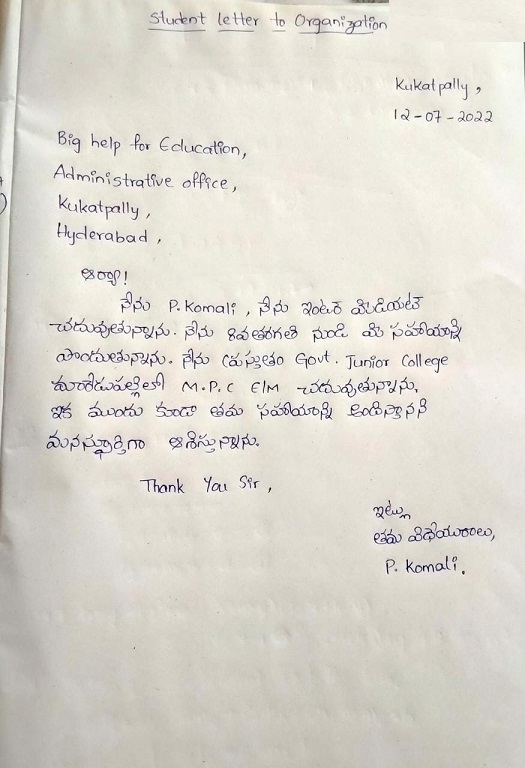 Student letter to Organization
Kukatpally,
12-07-2022
Big help for Education,
Administrative office,
Kukatpally,
Hyderabad,
ఆర్యా!
నేను P.Komali, నేను ఇంటర్ మీడియట్
చదువుతున్నాను. నేను 8వతరగతి నుండి మీ సహాయాన్ని
పొందుతున్నాను. నేను ప్రస్తుతం Govt. Junior College
మారేడుపల్లిలో M.P.C E/M చదువుతున్నాను.
ఇక ముందు కూడా తమ సహాయాన్ని అందిస్తారని
మనస్ఫూర్తిగా ఆశిస్తున్నాను.
Thank You Sir,
ఇట్లు
తమ విధేయురాలు,
P. Komali.